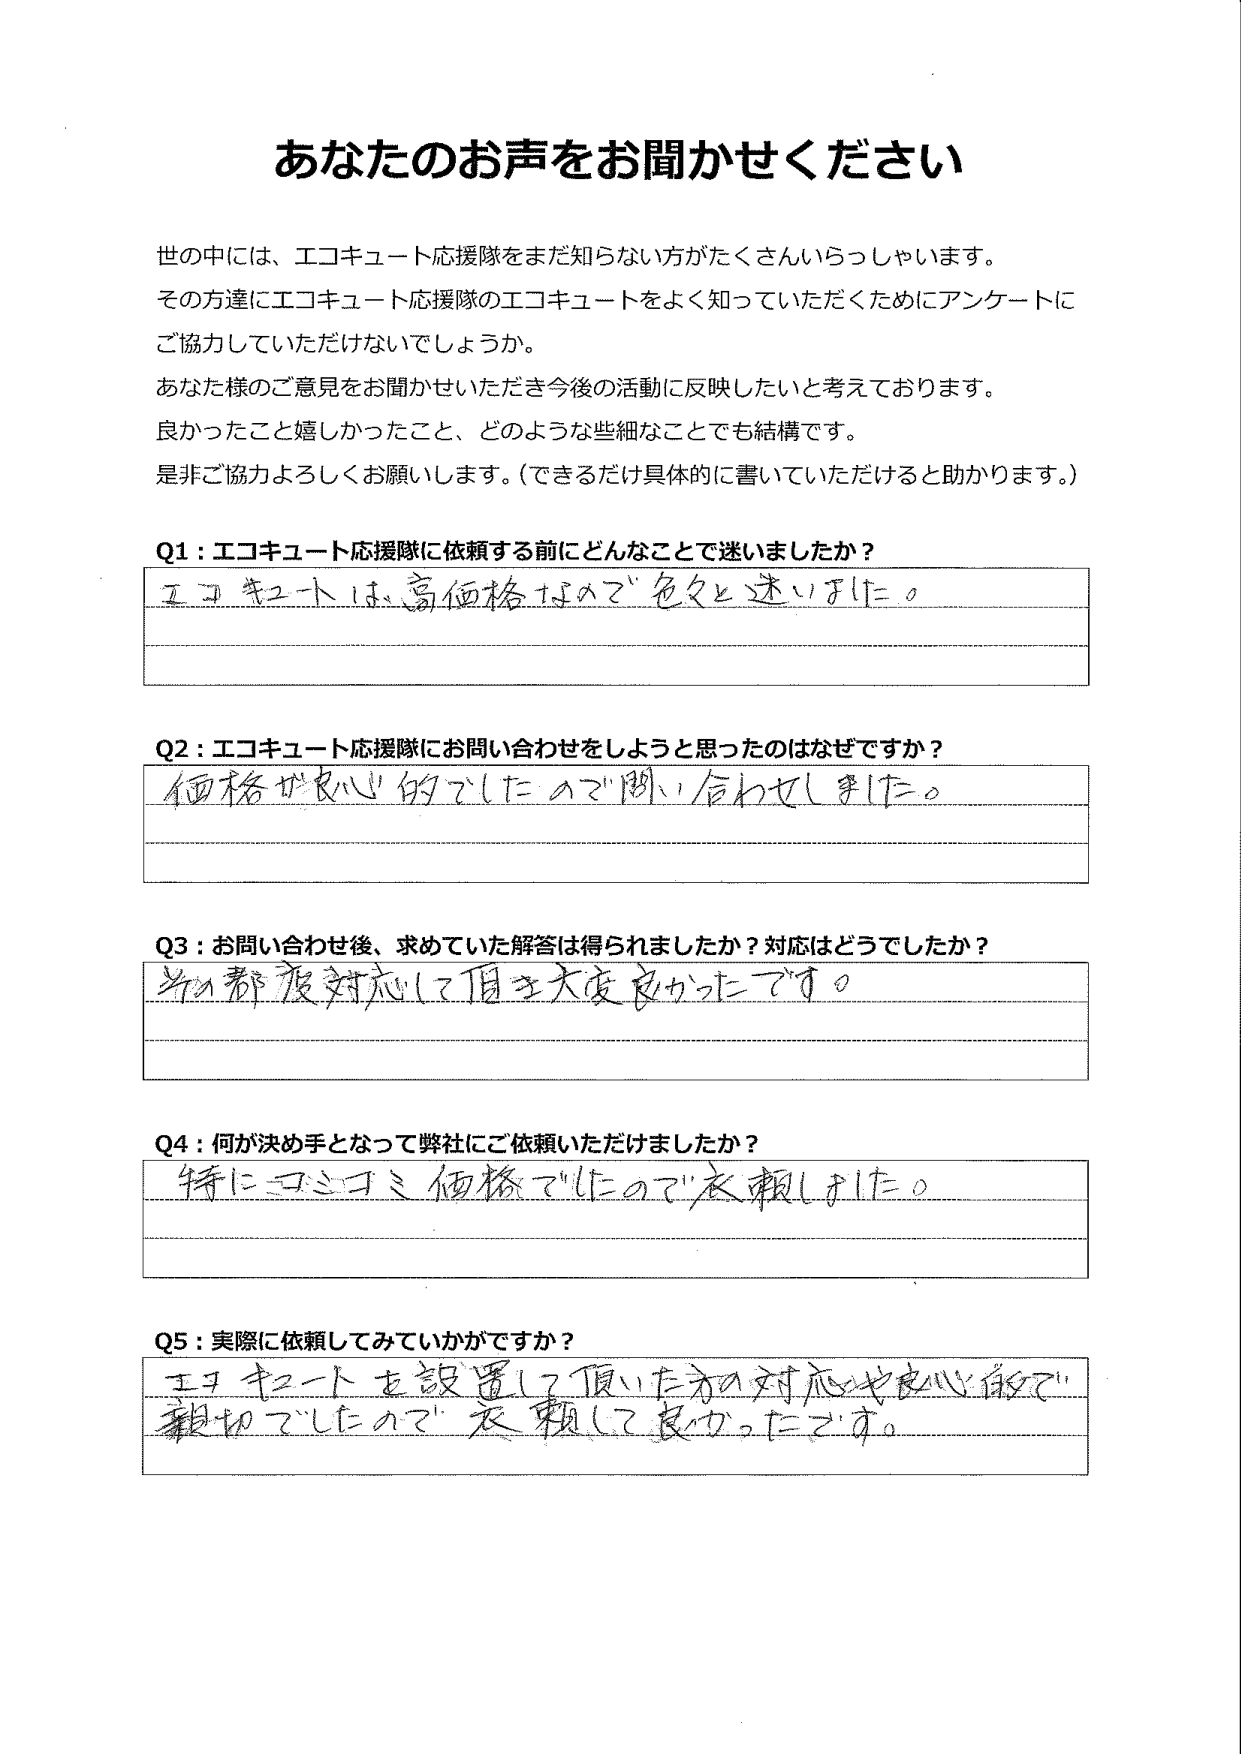 あなたのお声をお聞かせください
世の中には、エコキュート応援隊をまだ知らない方がたくさんいらっしゃいます。
その方達にエコキュート応援隊のエコキュートをよく知っていただくためにアンケートに
ご協力していただけないでしょうか。
あなた様のご意見をお聞かせいただき今後の活動に反映したいと考えております。
良かったこと嬉しかったこと、どのような些細なことでも結構です。
是非ご協力よろしくお願いします。(できるだけ具体的に書いていただけると助かります。)
Q1:エコキュート応援隊に依頼する前にどんなことで迷いましたか?
エコキュートは、高価格なので色々と迷いました。
Q2:エコキュート応援隊にお問い合わせをしようと思ったのはなぜですか?
価格が良心的でしたので問い合わせしました。
Q3:お問い合わせ後、求めていた解答は得られましたか?対応はどうでしたか?
その都度対応して頂き大変良かったです。
Q4:何が決め手となって弊社にご依頼いただけましたか?
特にコミコミ価格でしたので衣頼しました。
Q5:実際に依頼してみていかがですか?
エコキュートを設置して頂いた方の対応や良心的で
親切でしたので衣頼して良かったです。